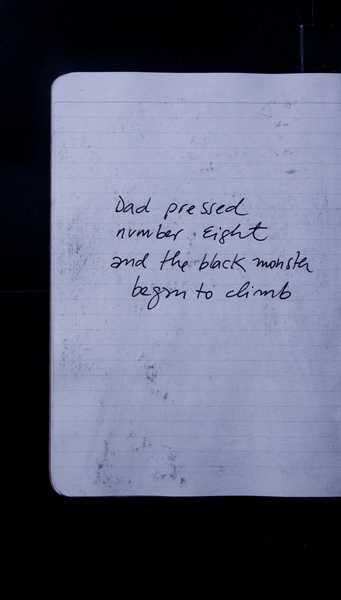 Dad pressed
number Eight
and the black monster
began to climb